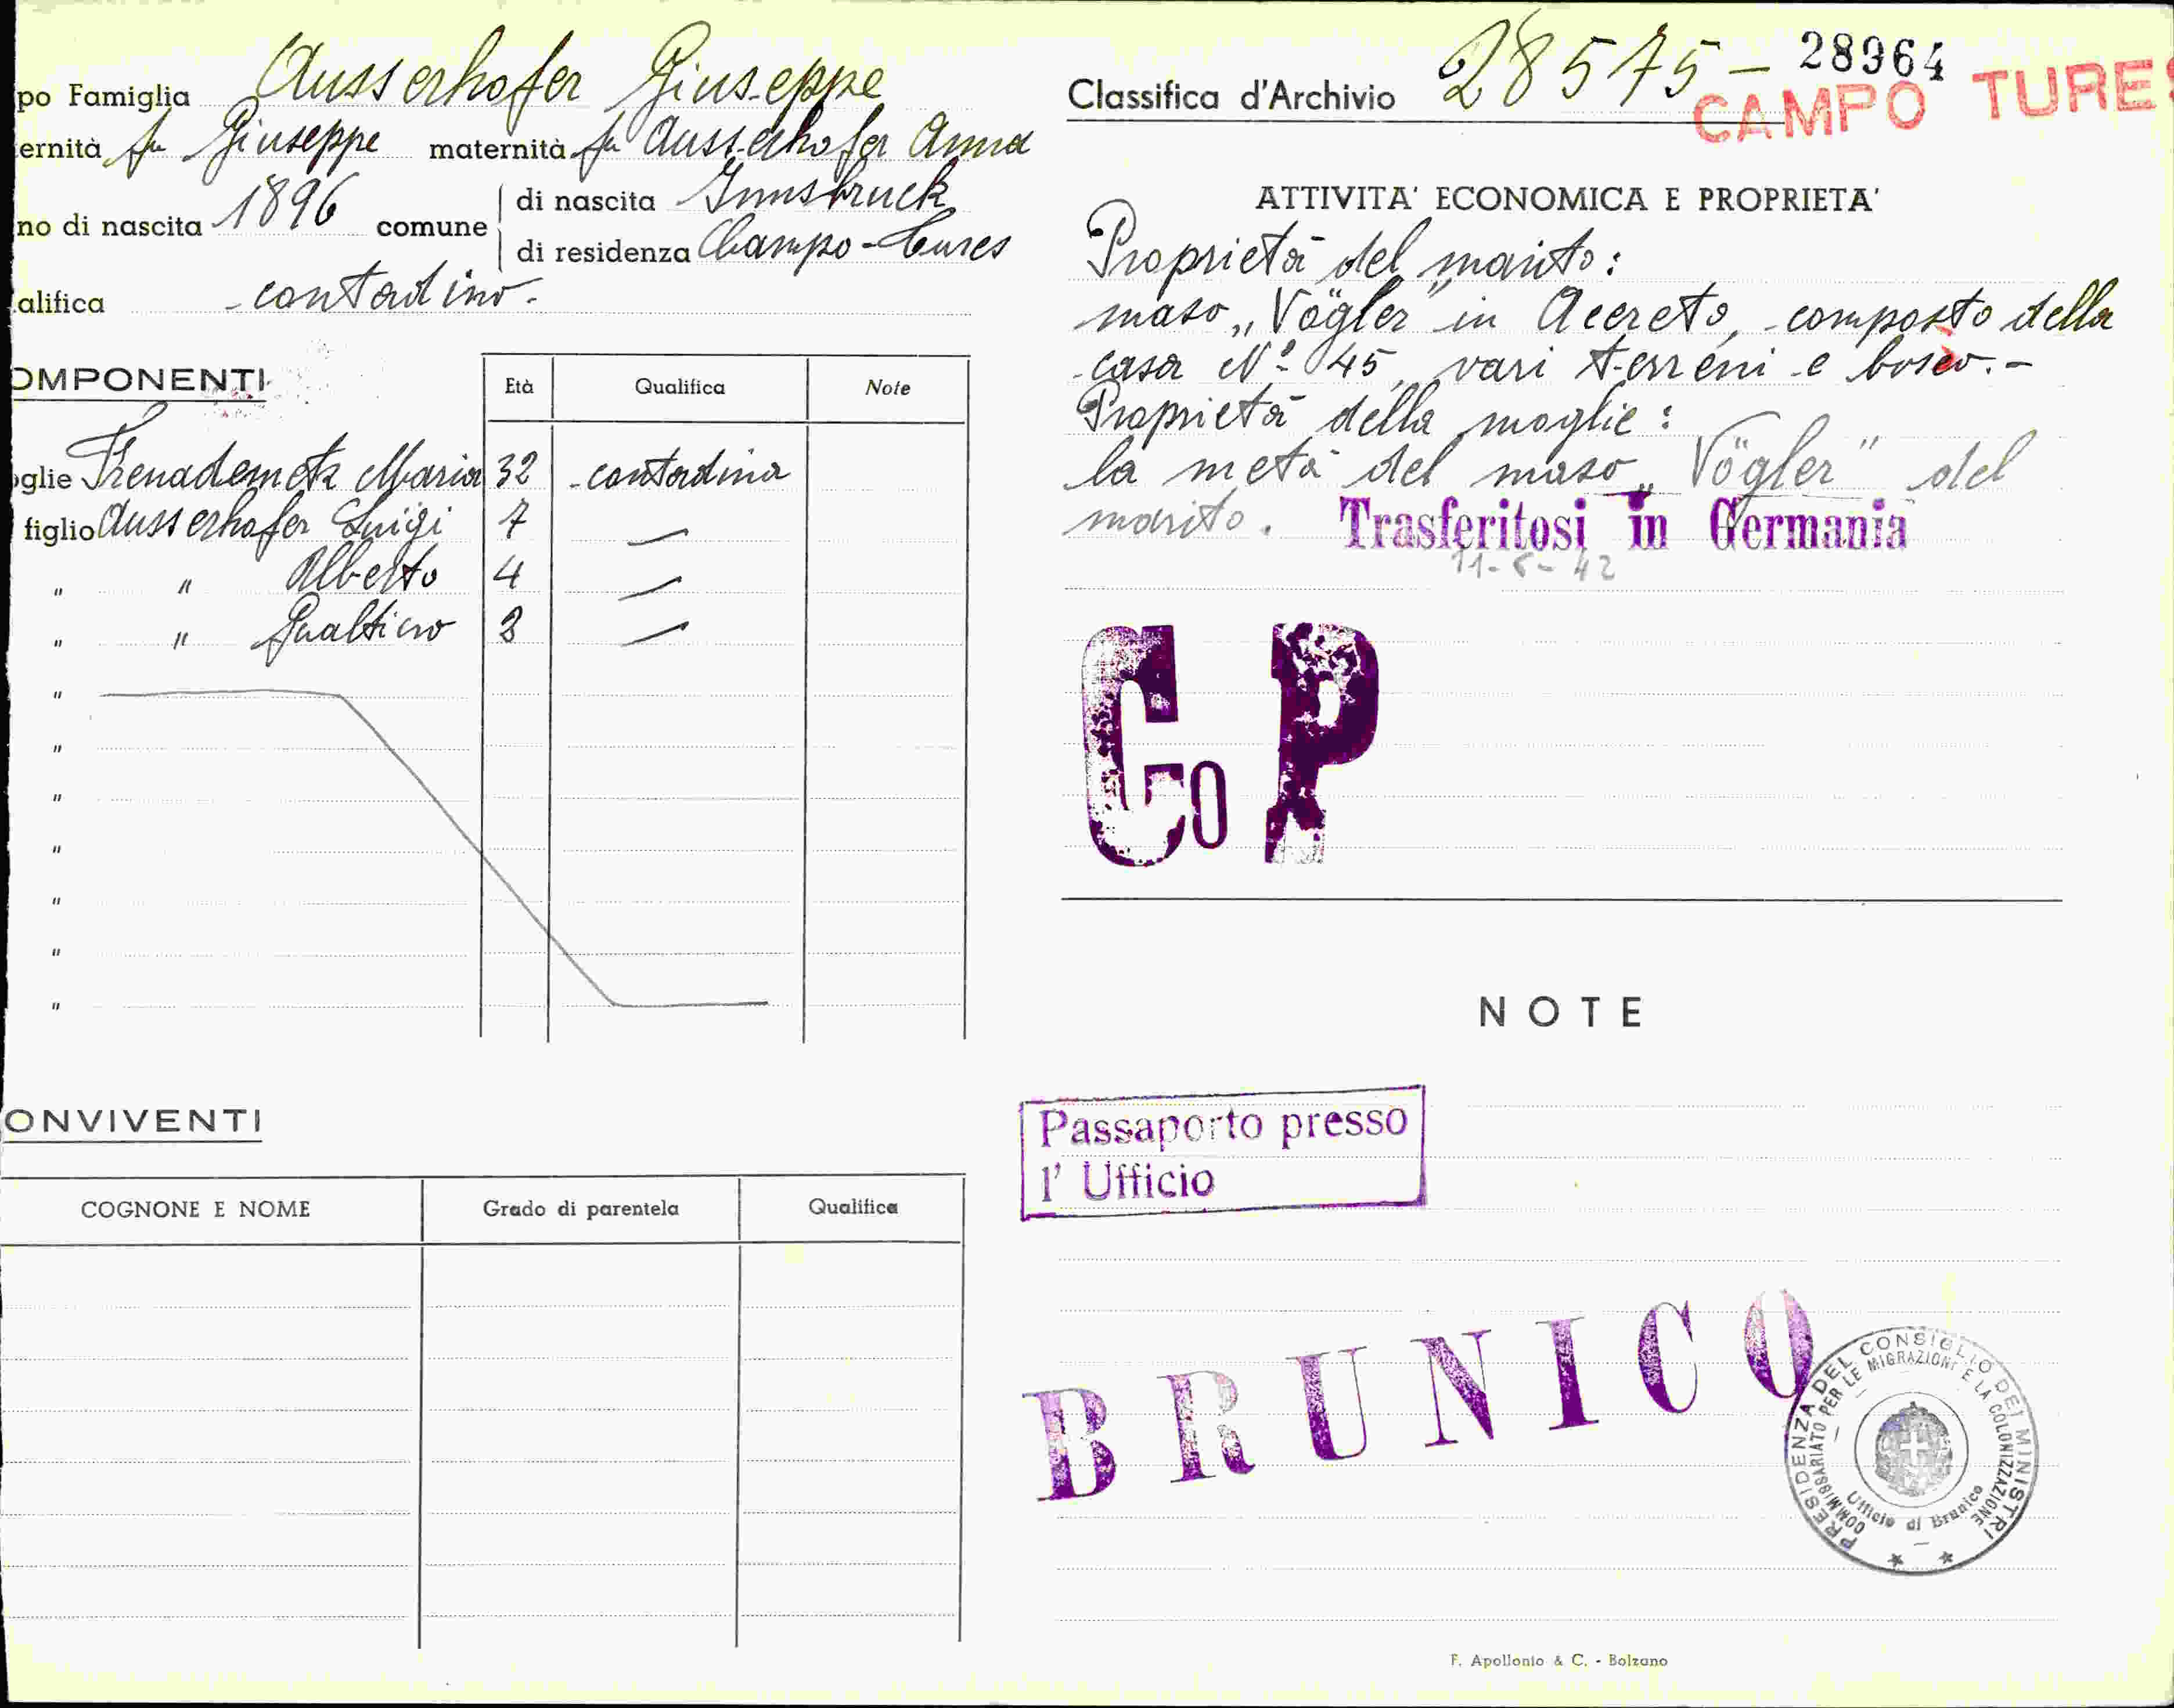 po Famiglia Ausserhofer Giuseppe
ernità fu Giuseppe maternità fu Ausserhofer Anna
no di nascita 1896 comune di nascita Innsbruck
di residenza Campo-Tures
alifica contadino.
OMPONENTI Età Qualifica Note
oglie Frenademetz Maria 32 contadina
figlio Ausserhofer Luigi 7 —
" " Alberto 4 —
" " Gualtiero —
"
"
"
"
"
"
"
ONVIVENTI
COGNONE E NOME Grado di parentela Qualifica
Classifica d'Archivio 28575 - 28964
CAMPO TURES
ATTIVITA' ECONOMICA E PROPRIETA'
Proprietà del marito:
maso „Vögler" in Acereto, composto della
casa Nº 45, vari terreni e bosco.-
Proprietà della moglie:
la metà del maso „Vögler" del
marito. Trasferitosi in Germania
Co P
NOTE
Passaporto presso
l' Ufficio
BRUNICO
PRESIDENZA DEL CONSIGLIO DEI MINISTRI
COMMISSARIATO PER LE MIGRAZIONI E LA COLONIZZAZIONE
Ufficio di Brunico
F. Apollonio & C. - Bolzano